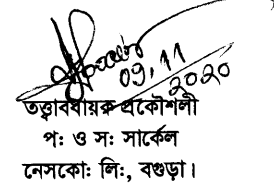 09.11
2020
তত্ত্বাবধায়ক প্রকৌশলী
পঃ ও সঃ সার্কেল
নেসকোঃ লিঃ, বগুড়া।